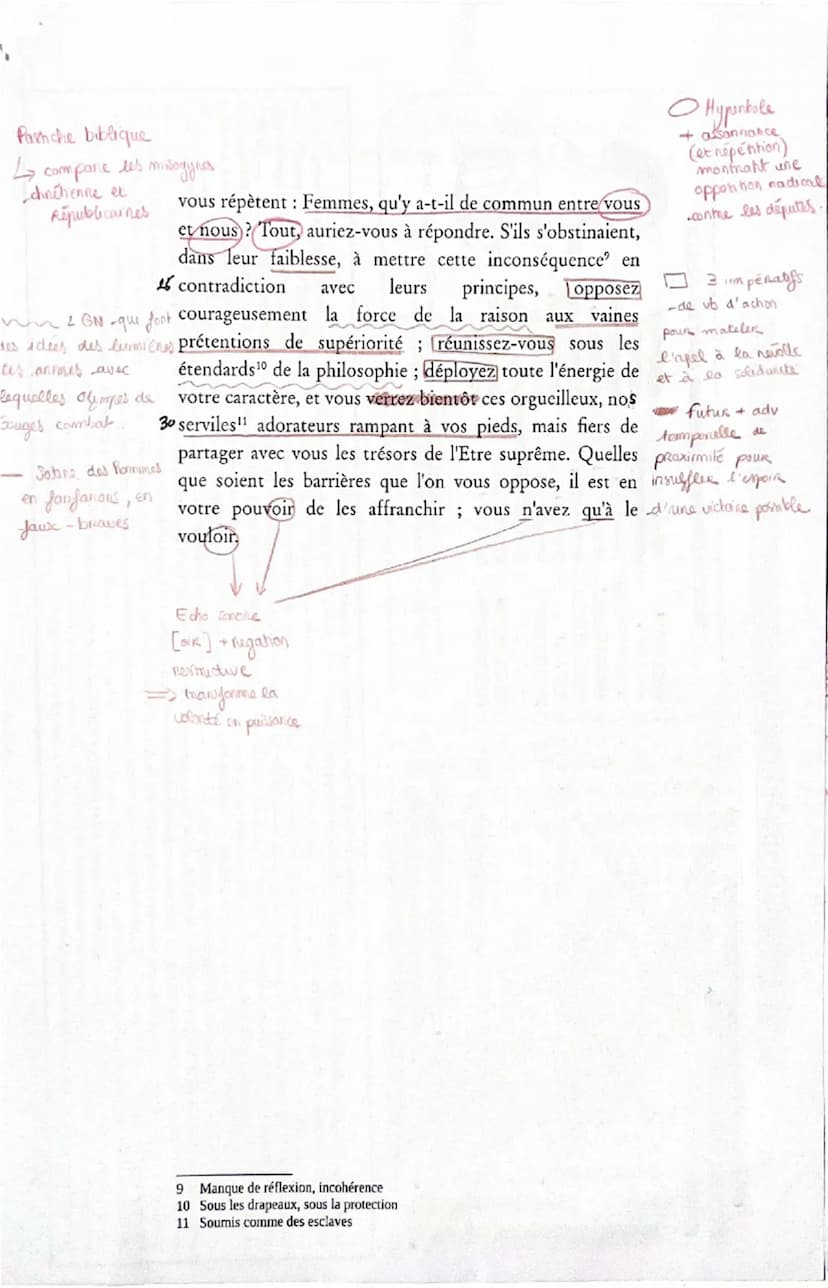 Pastiche biblique
↳ compare les misogynes
chrétienne et
Républicaines
~~~ 2 GN qui font
des idées des lumières
les armes avec
lesquelles Olympes de
Gouges combat.
— Satire des hommes
en fanfarons, en
faux-braves
vous répètent : Femmes, qu'y a-t-il de commun entre vous
et nous ? Tout, auriez-vous à répondre. S'ils s'obstinaient,
dans leur faiblesse, à mettre cette inconséquence⁹ en
contradiction avec leurs principes, opposez
courageusement la force de la raison aux vaines
prétentions de supériorité ; réunissez-vous sous les
étendards¹⁰ de la philosophie ; déployez toute l'énergie de
votre caractère, et vous verrez bientôt ces orgueilleux, nos
30 serviles¹¹ adorateurs rampant à vos pieds, mais fiers de
partager avec vous les trésors de l'Etre suprême. Quelles
que soient les barrières que l'on vous oppose, il est en
votre pouvoir de les affranchir ; vous n'avez qu'à le
vouloir.
Hyperbole
+ assonnance
(et répétition)
montrant une
opposition radicale
contre les députés.
3 impératifs
de vb d'action
pour
l'apel à la révolte
et à la solidarité
Futur + adv
temporelle de
proximité pour
insuffler l'espoir
d'une victoire possible.
Echo sonore
[oir] + négation
restrictive
⇒ transforme la
volonté en puissance
9 Manque de réflexion, incohérence
10 Sous les drapeaux, sous la protection
11 Soumis comme des esclaves